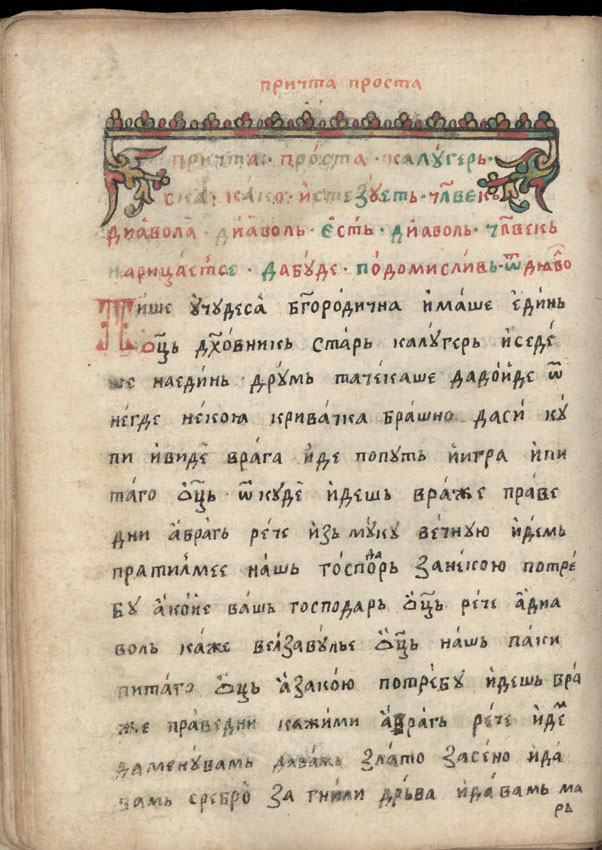 причта проста
причта · про́ста · калꙋгерь·
ска · ка́ко · и́стезꙋеть · чл҃векь
дїа́вола̀ · дїа́воль · є҆сть · дїаволь · чл҃векь
нарица́етсе · да бꙋде · по́домисливь · ѿ
Пише ꙋ҆ чꙋдеса̀ бг҃оро́дична и҆ма́ше є҆ди́нь
ѻц҃ь дх҃о́вникь ста́рь калꙋгерь и҆седе́
ше наеди́нь дрꙋмь та чекаше да до́йде ѿ
не́где не́кою кривачка бра́шно да си кꙋ́
пи и҆ видѐ вра́га и҆́де попꙋть и҆ игра̀ и҆ пи
та́го ѻц҃ь ѿ кꙋде̏ и҆дешь вра́же пра́ве
дни а҆ вра́гь рѐче и҆зь мꙋкꙋ ве́чнꙋю и҆де́мь
пратилмее нашь го́сподарь за некою потре́
бꙋ а҆ ко́йе ва́шь господарь ѻц҃ь рече а҆ дїа
воль ка́же велзавꙋлье ѻц҃ь нашь па́ки
пита́го ѻц҃ь а҆ за ко́ю потре́бꙋ и҆дешь вра́
же пра́ведни ка́жи ми а҆ вра́гь ре́че и҆де
да менꙋвамь дава́мь зла́то за се́но и҆ да́
вамь сребро̀ за гни́ли дрь́ва и҆ да́вамь ма
рь